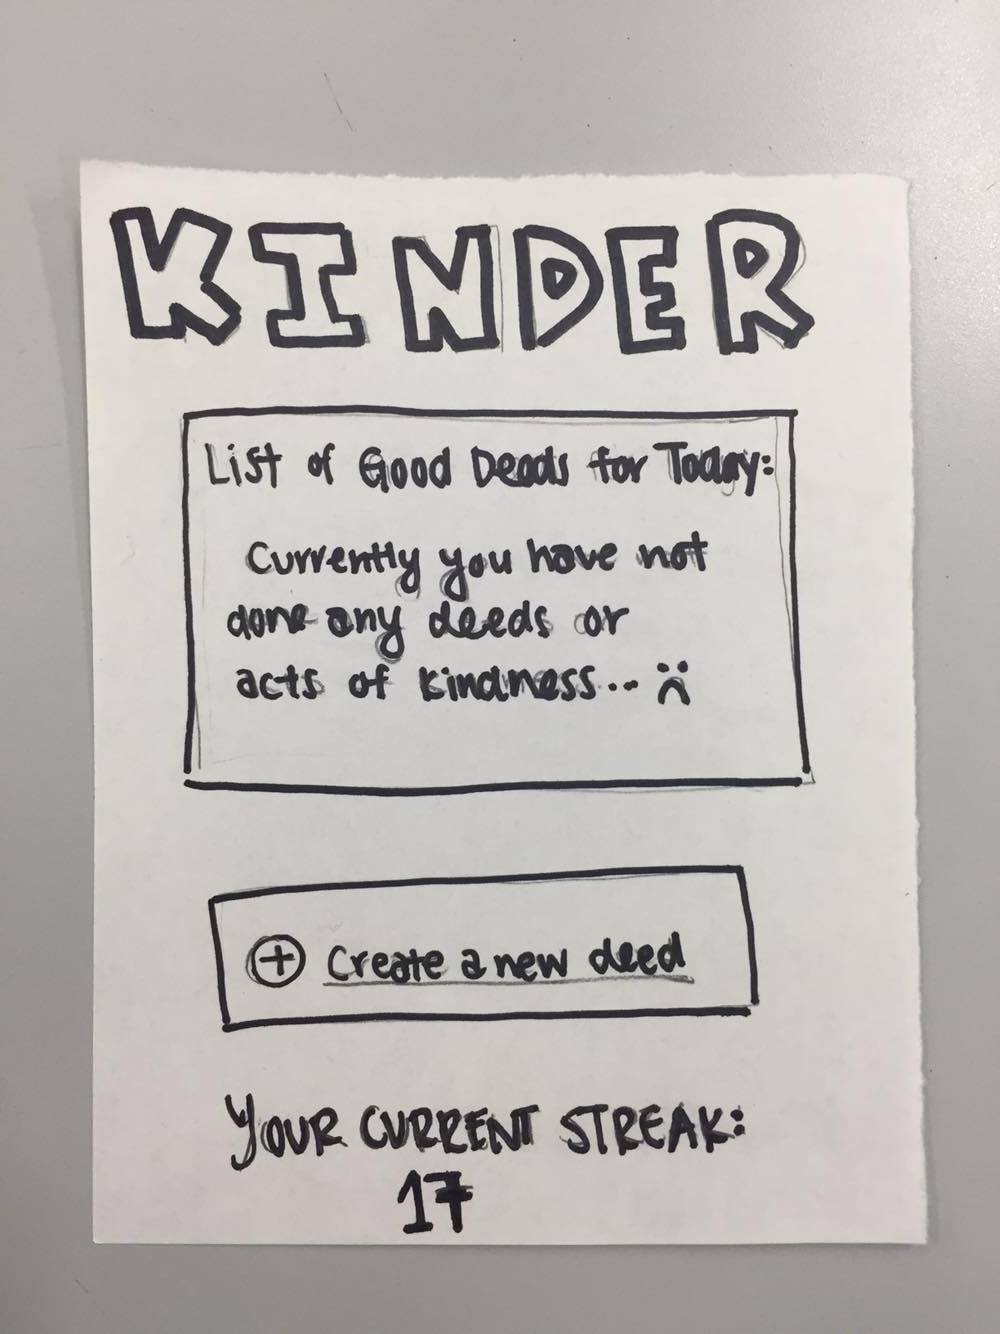 KINDER
List of Good Deeds for Today:
Currently you have not
done any deeds or
acts of kindness... :(
+ Create a new deed
YOUR CURRENT STREAK:
17